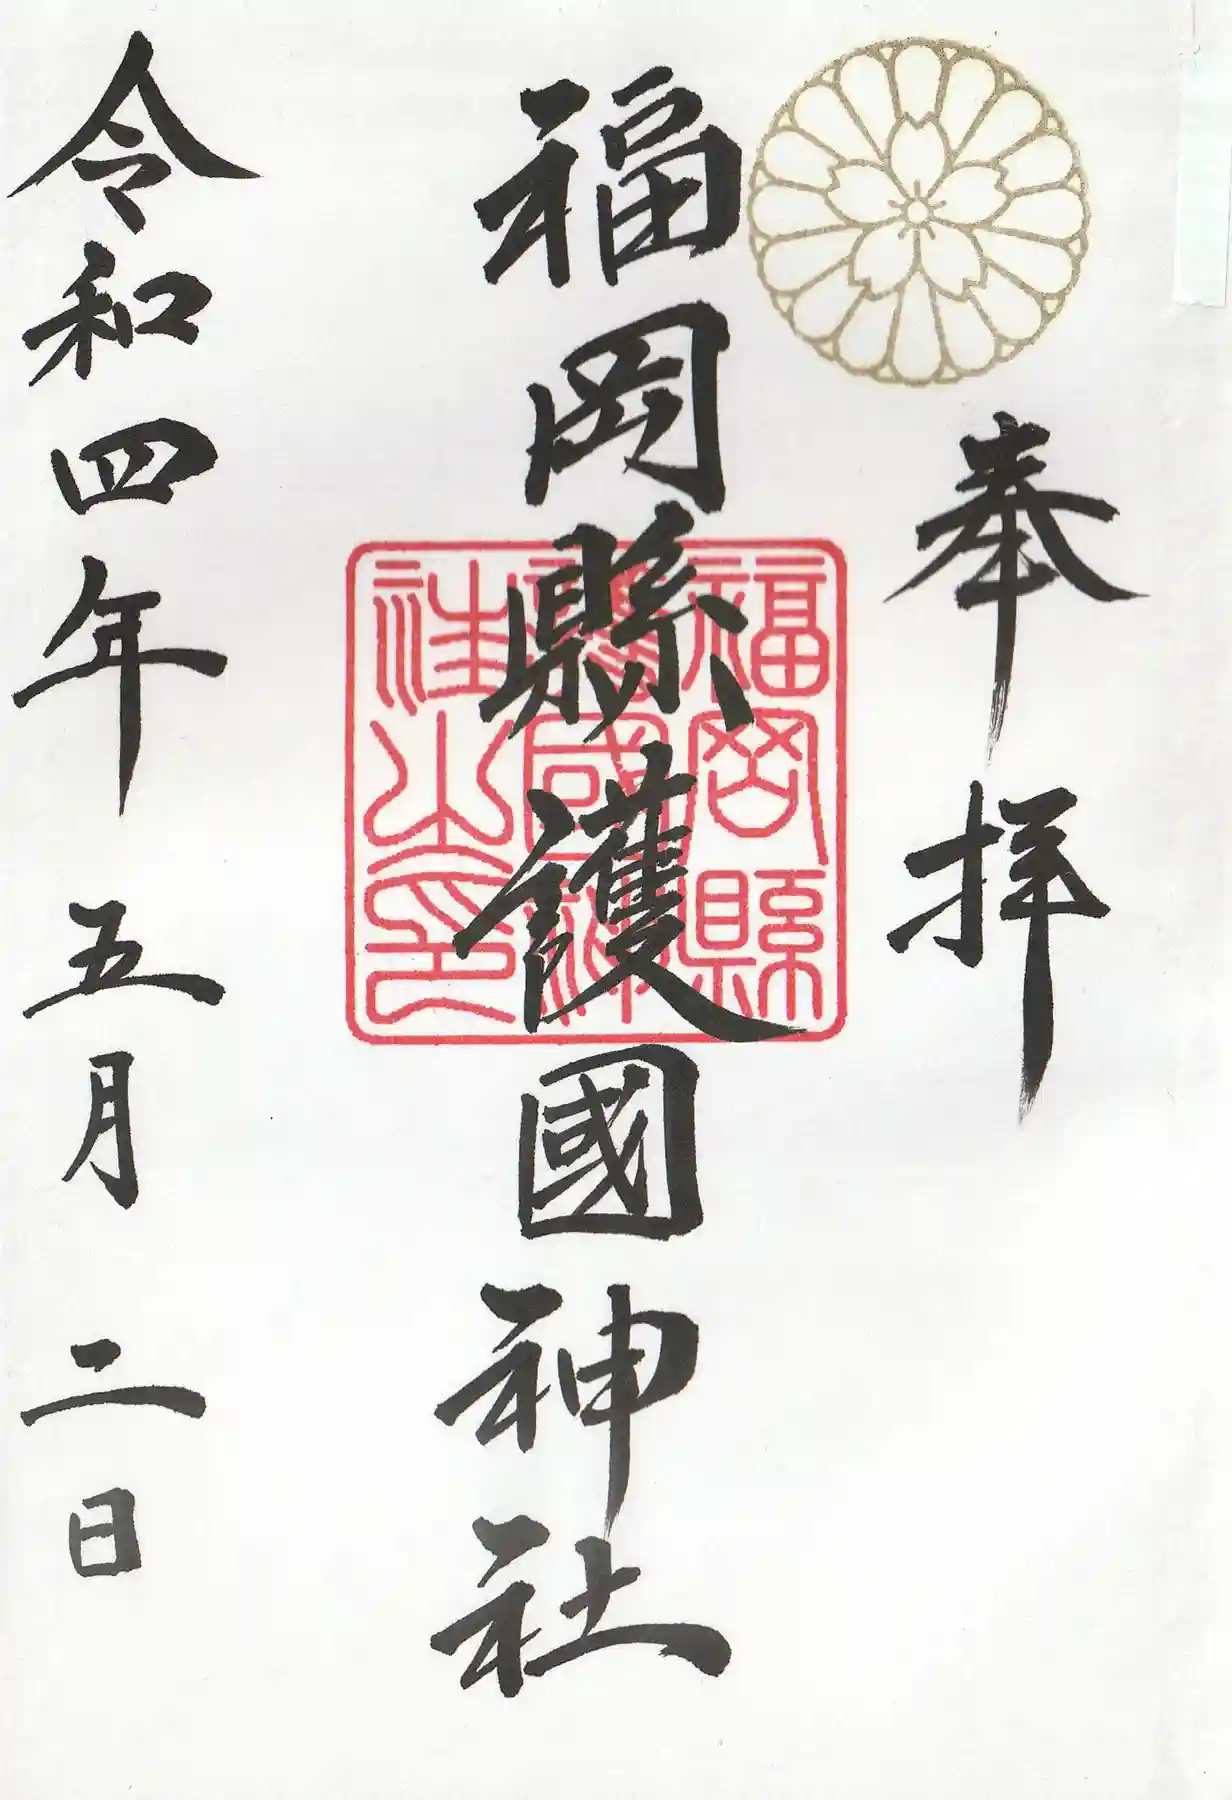 奉拝
福岡縣護國神社
福岡縣
護國神
社之印
令和四年 五月 二日